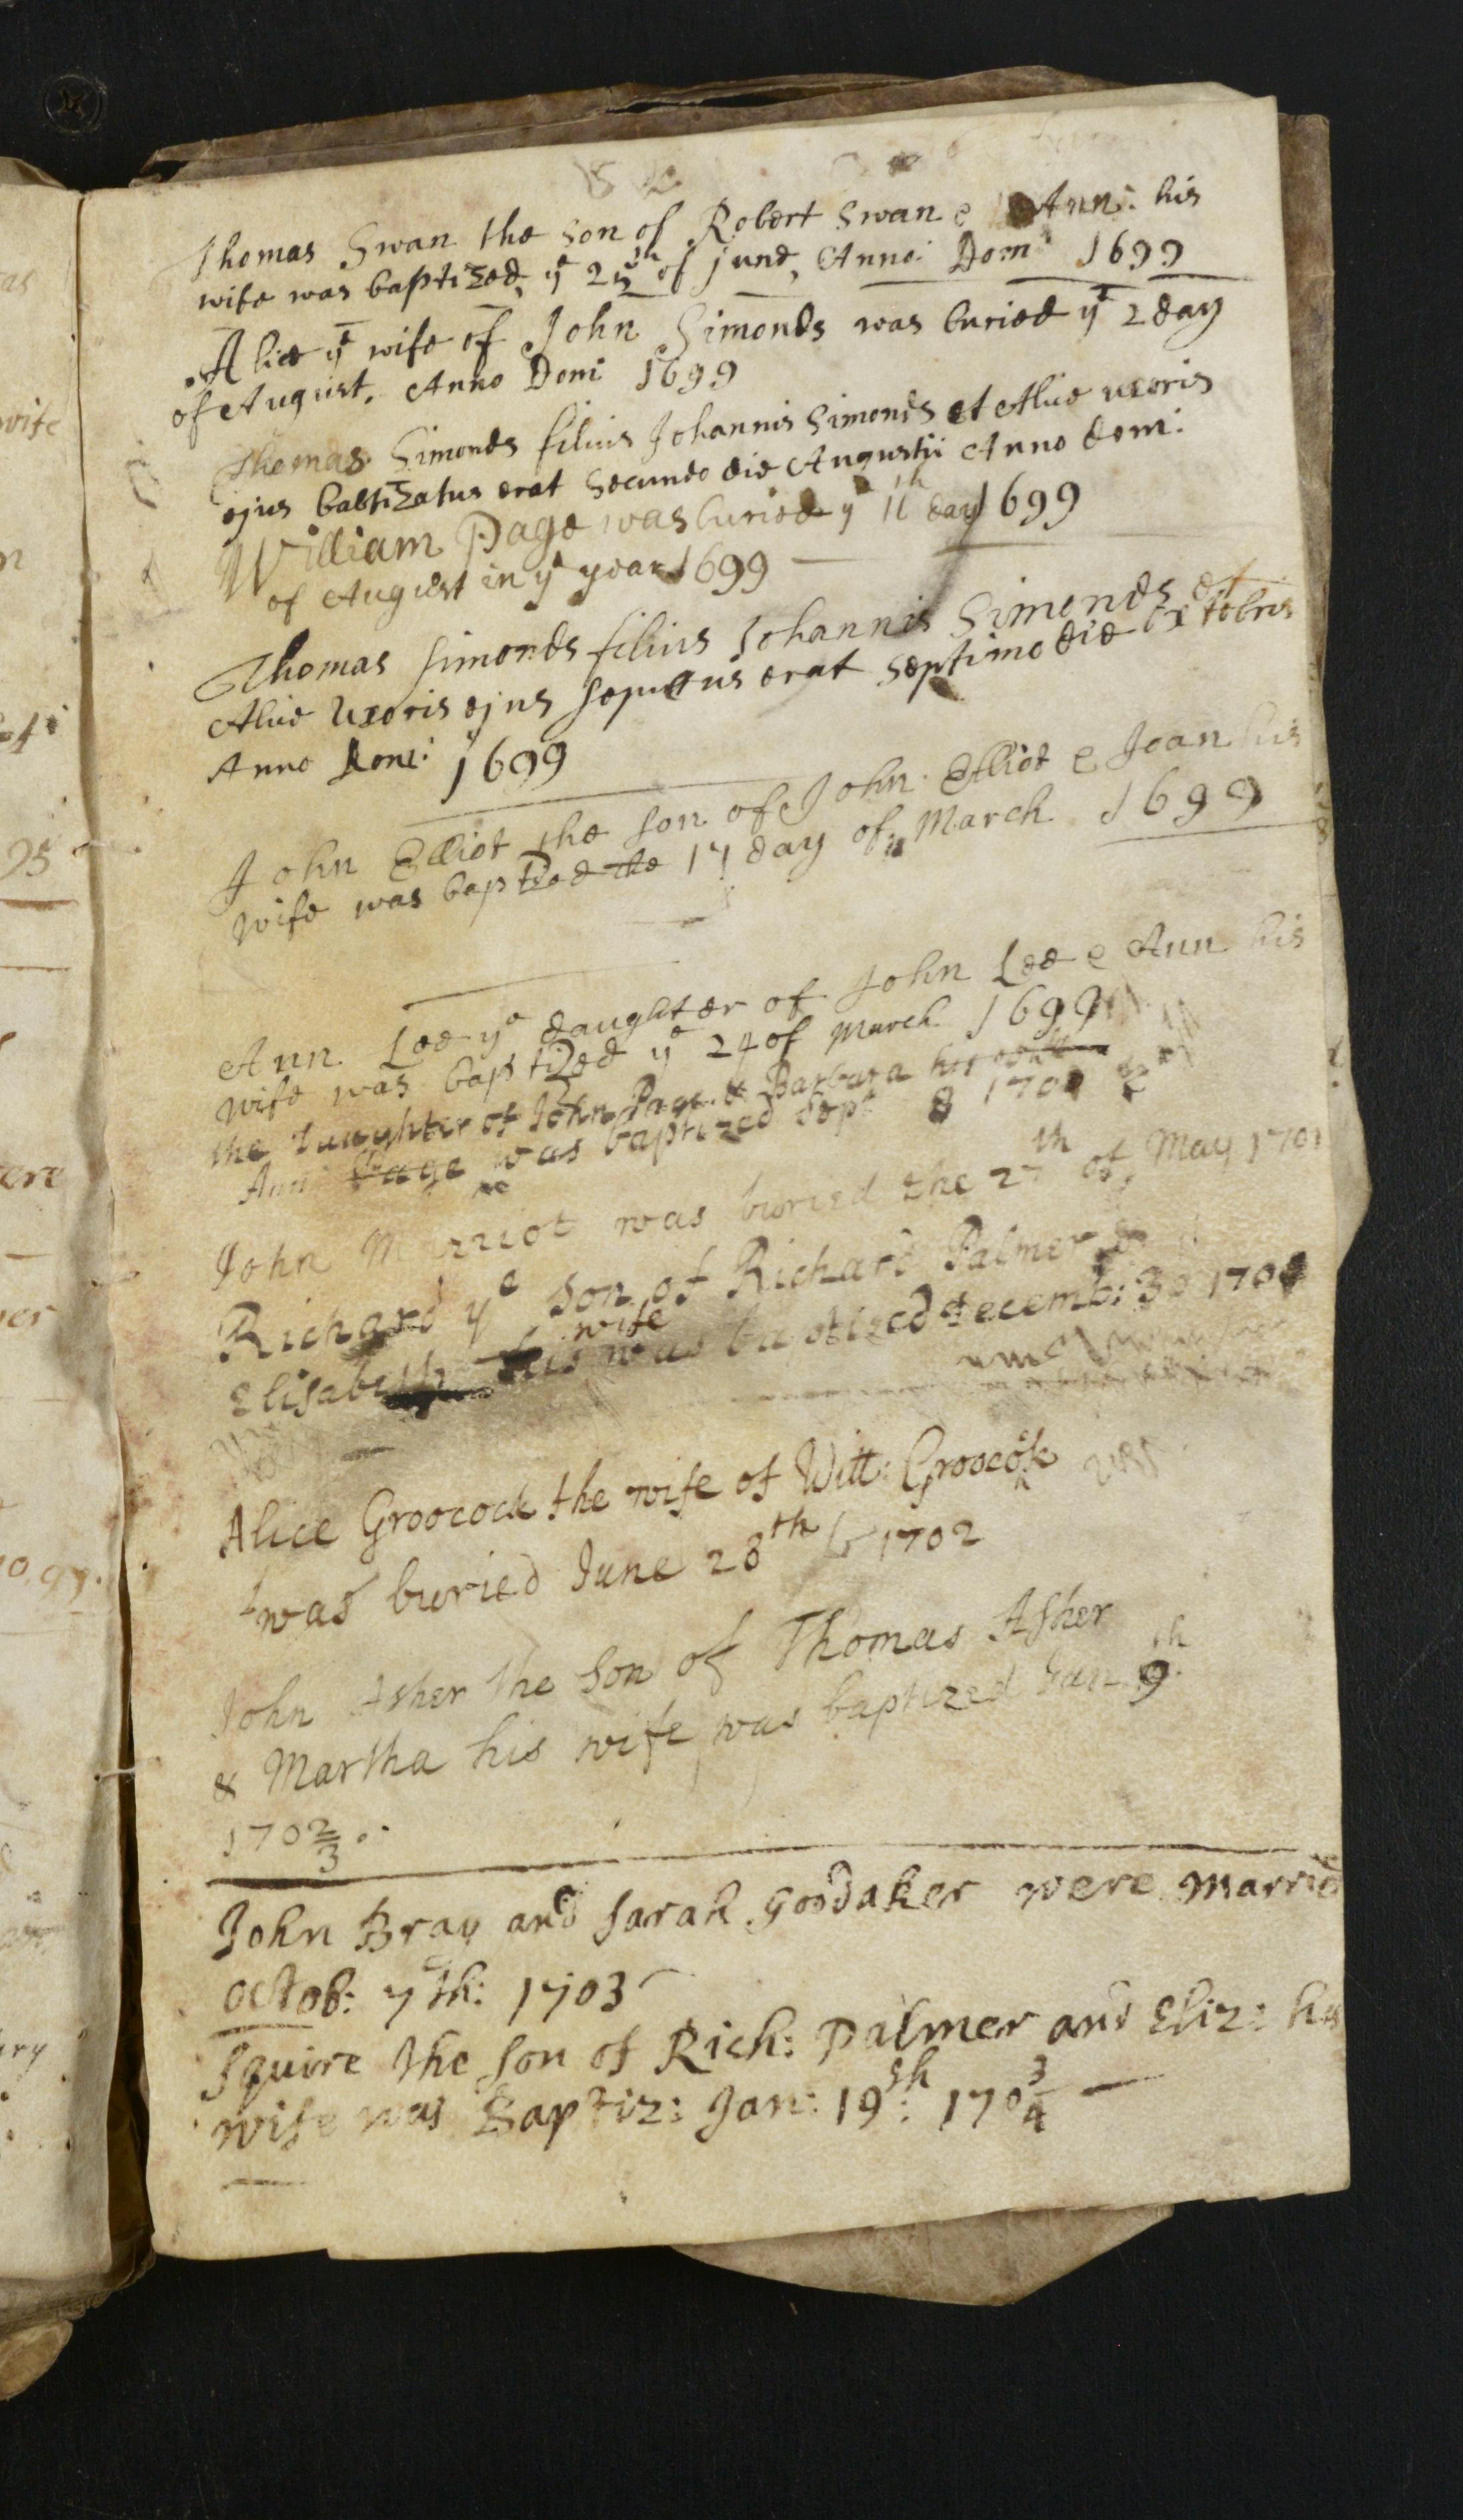 Thomas Swan the son of Robert Swan & Ann: his
wife was baptized, yᵉ 25ᵗʰ of June, Anno: Dom: 1699
Alice yᵉ wife of John Simonds was buried yᵉ 2 day
of August, Anno Domi 1699
Thomas Simonds filius Johannis Simonds et Alice uxoris
ejus babtizatus erat Secundo die Augustii Anno domi:
1699
William Page was buried yᵉ 11ᵗʰ day
of August in yᵉ year 1699
Thomas Simonds filius Johannis Simonds et
Alice Uxoris ejus sepultus erat septimo die Octobris
Anno Domi: 1699
John Elliot the son of John Elliot & Joan his
wife was baptized the 17 day of March 1699
Ann Lee yᵉ daughter of John Lee & Ann his
wife was baptized yᵉ 24 of March 1699
the daughter of John Page & Barbara his wife
Ann Page was baptized Sept 8 170
John Marriot was buried the 27ᵗʰ of May 1701
Richard yᵉ son of Richard Palmer &
wife
Elisabeth his was baptized decemb: 30 170
Alice Groocock the wife of Will: Groocock
was buried June 28ᵗʰ 1702
John Asher the Son of Thomas Asher
& Martha his wife was baptized Jan 9ᵗʰ
1702/3
John Bray and Sarah Goodaker were Married
Octob: 7th: 1703
Squire the son of Rich: Palmer and Eliz: his
wife was Baptiz: Jan: 19ᵗʰ: 1703/4
as
wife
n
95
ere
er